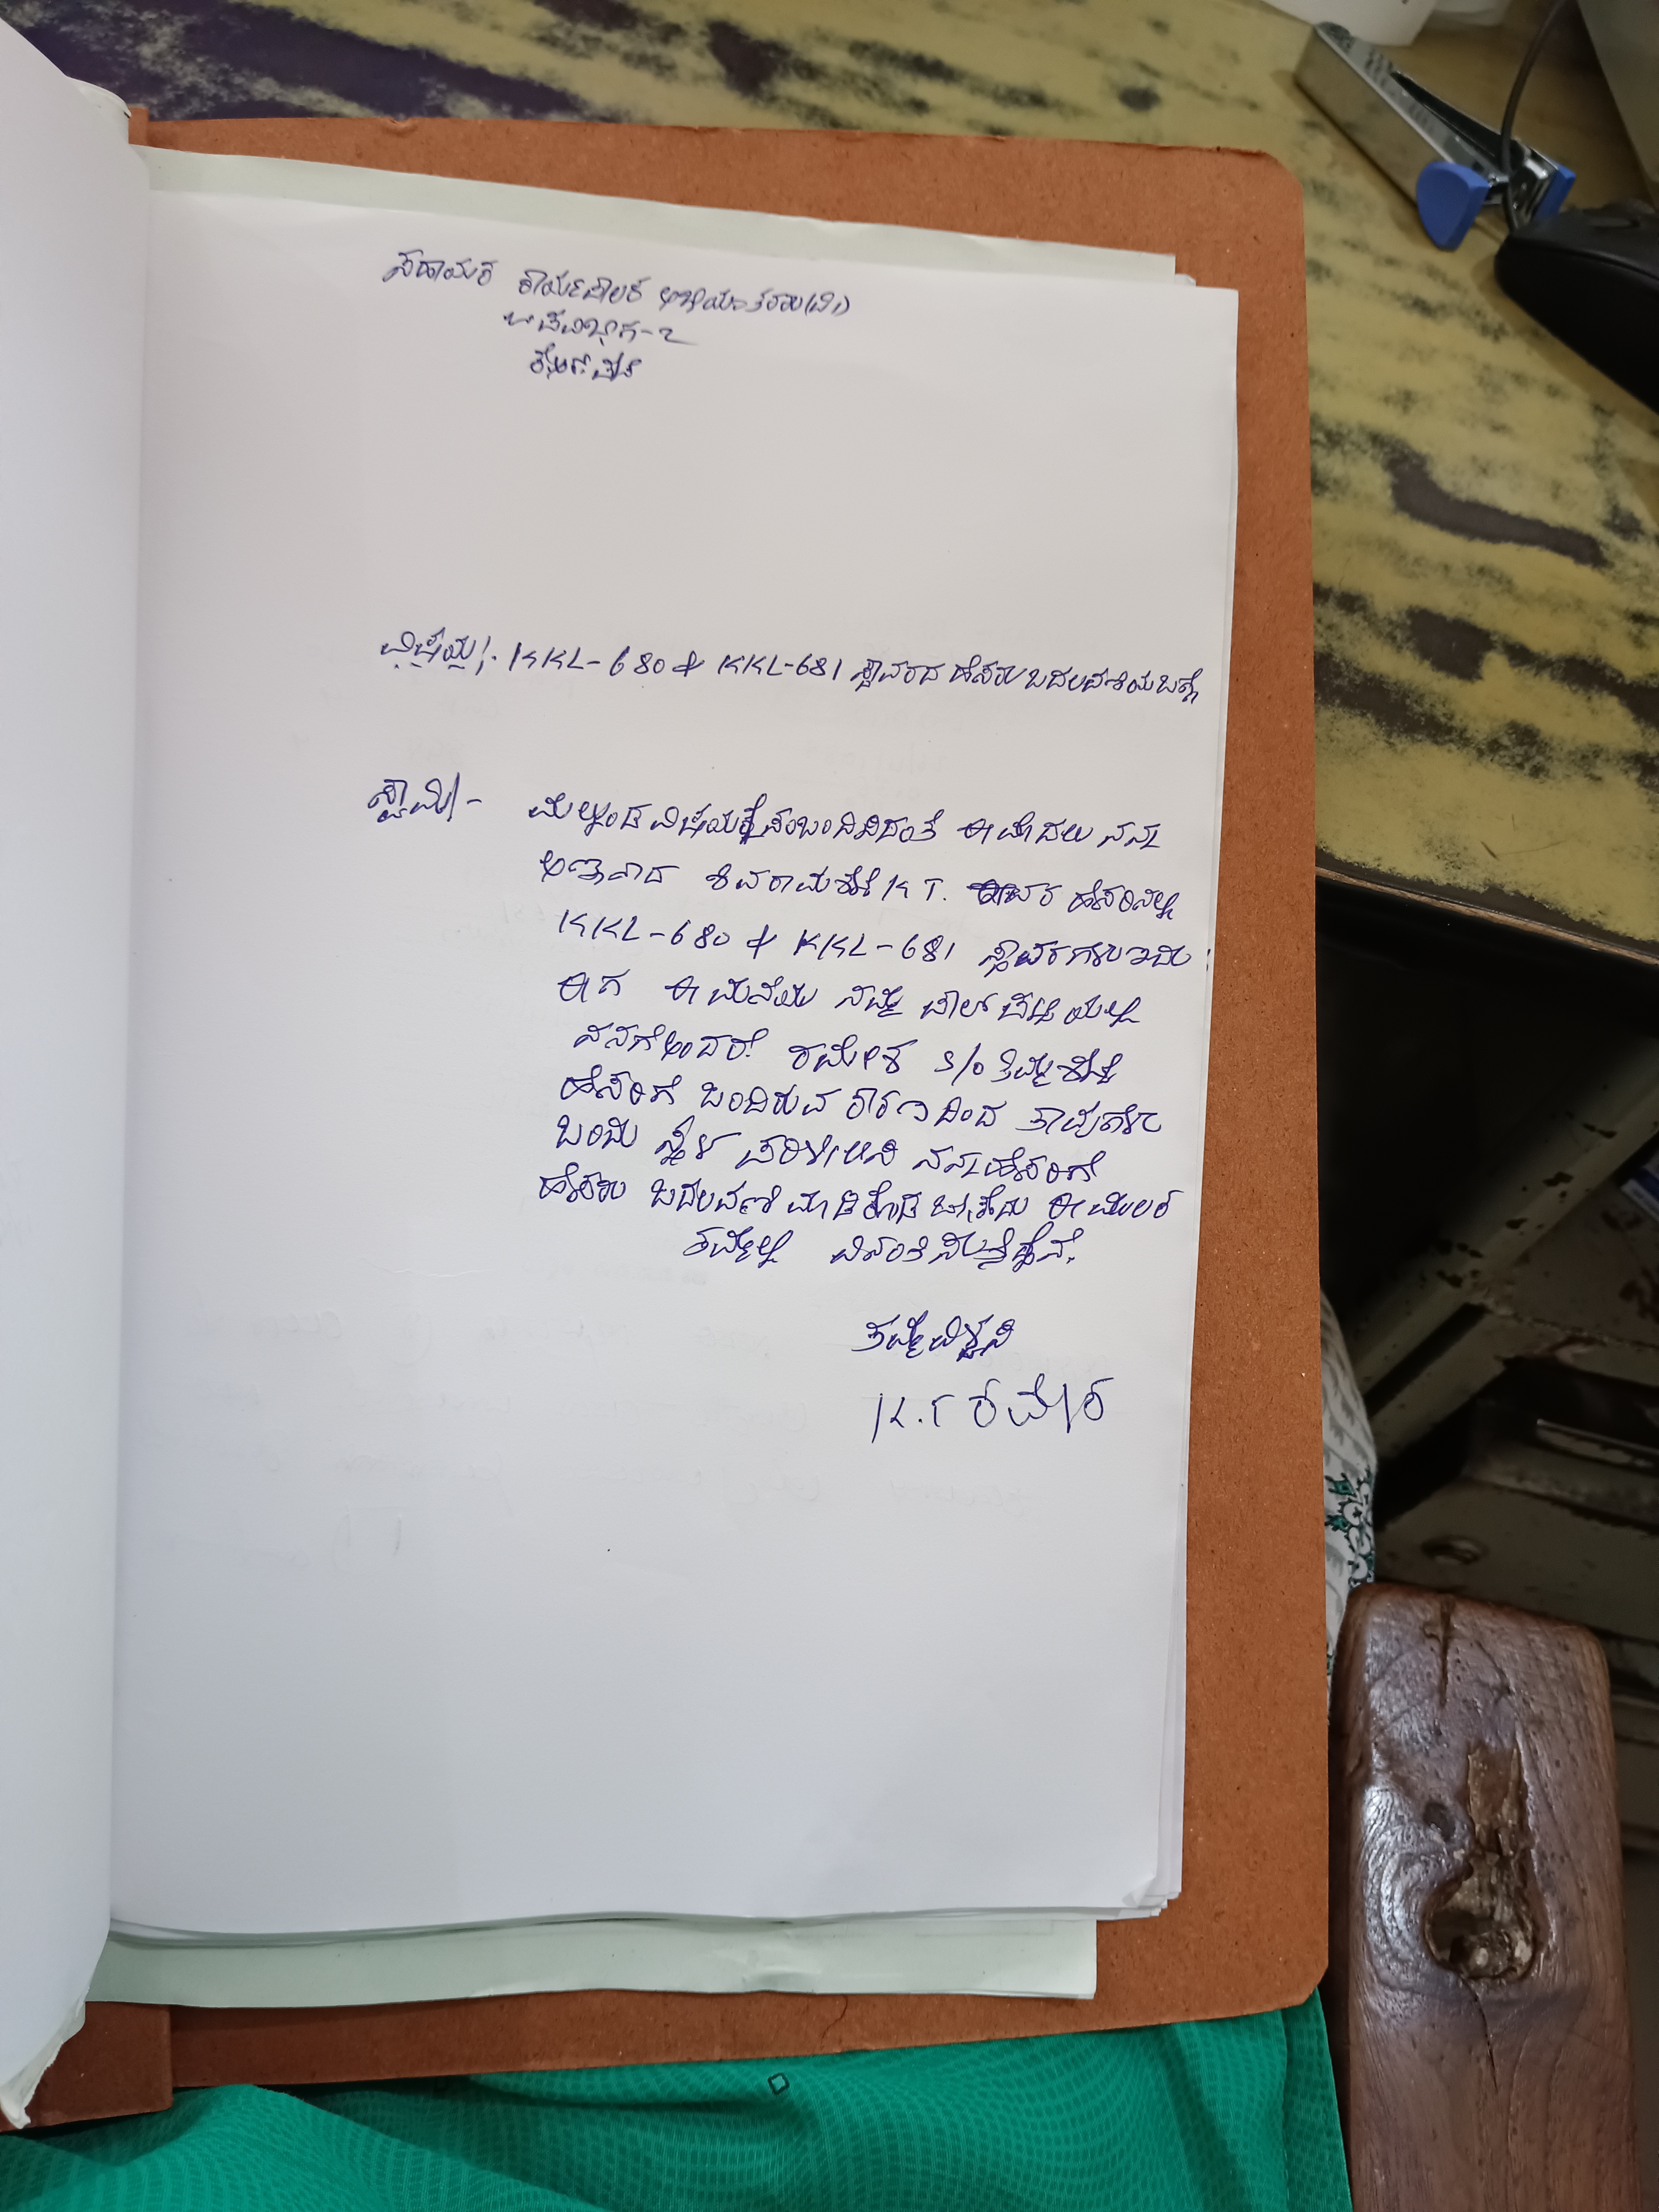 ಸಹಾಯಕ ಕಾರ್ಯಪಾಲಕ ಅಭಿಯಂತರರು(ವಿ)
ಉಪವಿಭಾಗ-2
ವಿಷಯ:- KKL-680 & KKL-681 ಸ್ಥಾವರದ ಹೆಸರು ಬದಲಾವಣೆಯ ಬಗ್ಗೆ
ಸ್ವಾಮಿ/- ಮೇಲ್ಕಂಡ ವಿಷಯಕ್ಕೆ ಸಂಬಂದಿಸಿದಂತೆ ಈ ಮೊದಲು ನನ್ನ
ಅಣ್ಣನಾದ ಶಿವರಾಮಶೆಟ್ಟಿ K T. ಅವರ ಹೆಸರಿನಲ್ಲಿ
KKL-680 & KKL-681 ಸ್ಥಾವರಗಳು ಇದ್ದು
ಈಗ ಈ ಮನೆಯು ನಮ್ಮ ಪಾಲ್ ಪಟ್ಟಿಯಲ್ಲಿ
ನನಗೆ ಅಂದರೆ. ರಮೇಶ S/o ತಿಮ್ಮಶೆಟ್ಟಿ
ಹೆಸರಿಗೆ ಬಂದಿರುವ ಕಾರಣದಿಂದ ತಾವುಗಳು
ಬಂದು ಸ್ಥಳ ಪರಿಶೀಲಿಸಿ ನನ್ನ ಹೆಸರಿಗೆ
ಹೆಸರು ಬದಲಾವಣೆ ಮಾಡಿಕೊಡ ಬೇಕೆಂದು ಈ ಮೂಲಕ
ತಮ್ಮಲ್ಲಿ ವಿನಂತಿಸುತ್ತೇನೆ.
ತಮ್ಮ ವಿಶ್ವಾಸಿ
K.T ರಮೇಶ